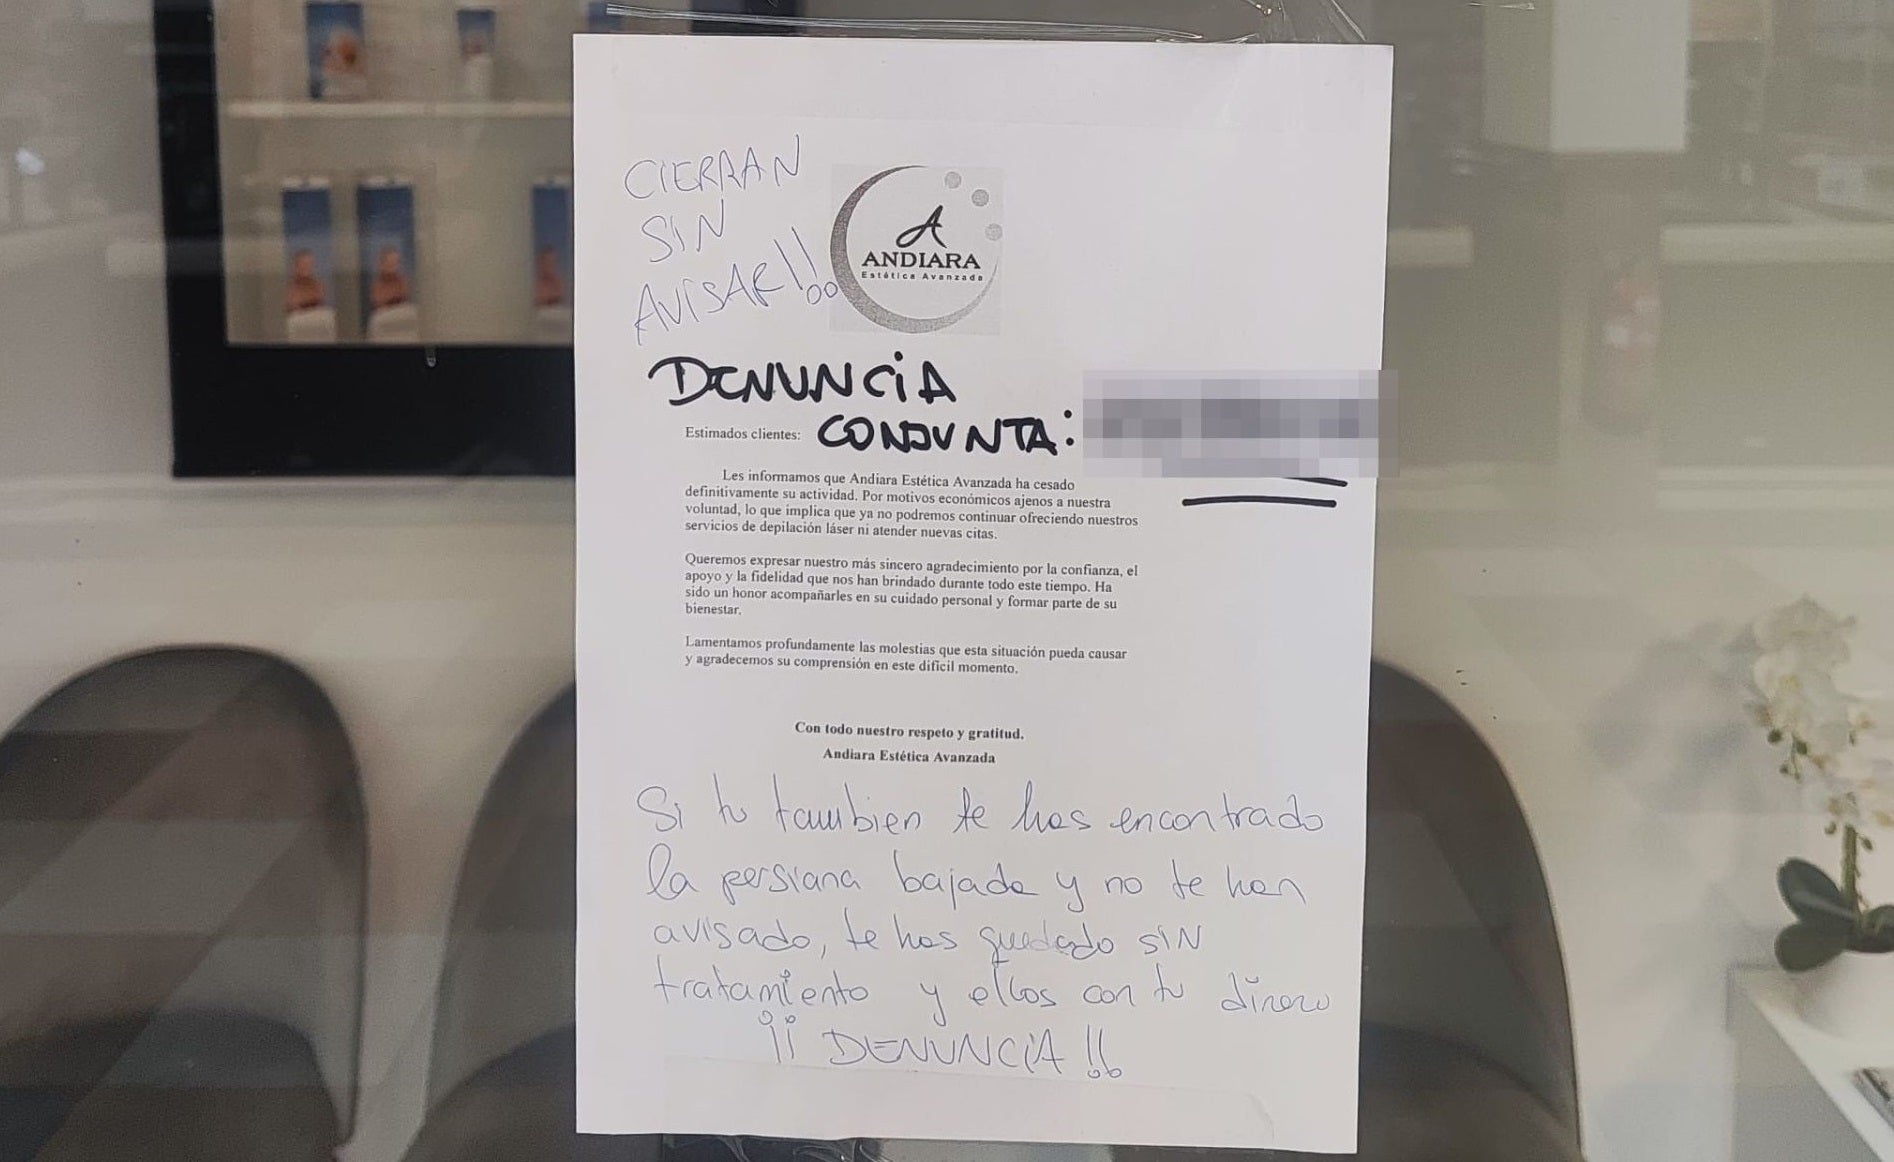 CIERRAN
SIN
AVISAR!!
A
ANDIARA
Estética Avanzada
DENUNCIA
CONJUNTA:
Estimados clientes:
Les informamos que Andiara Estética Avanzada ha cesado
definitivamente su actividad. Por motivos económicos ajenos a nuestra
voluntad, lo que implica que ya no podremos continuar ofreciendo nuestros
servicios de depilación láser ni atender nuevas citas.
Queremos expresar nuestro más sincero agradecimiento por la confianza, el
apoyo y la fidelidad que nos han brindado durante todo este tiempo. Ha
sido un honor acompañarles en su cuidado personal y formar parte de su
bienestar.
Lamentamos profundamente las molestias que esta situación pueda causar
y agradecemos su comprensión en este difícil momento.
Con todo nuestro respeto y gratitud.
Andiara Estética Avanzada
Si tu tambien te has encontrado
la persiana bajada y no te han
avisado, te has quedado SIN
tratamiento y ellos con tu dinero
¡¡ DENUNCIA!!